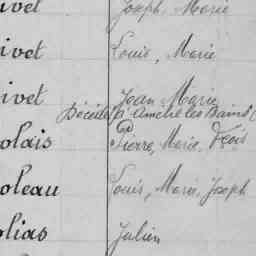 ivet Joseph Marie
ivet Louis, Marie
ivet Jean Marie
Décédé à Amélie les Bains
olais Pierre, Marie, Fçois
oleau Louis, Marie, Joseph
olias Julien